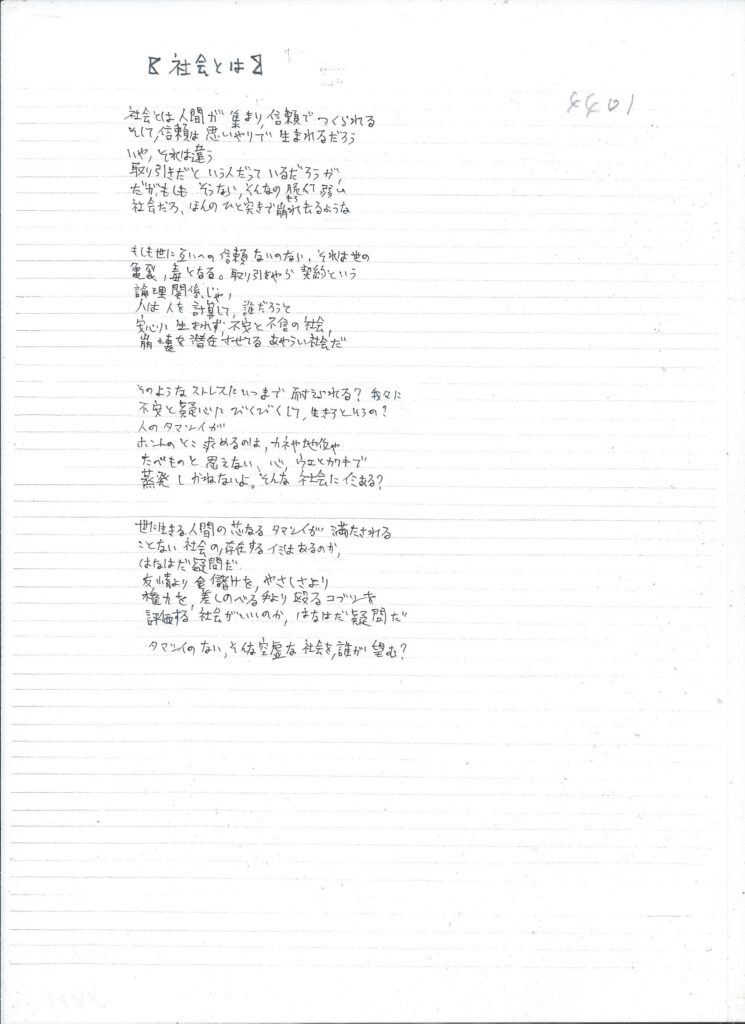 【社会とは】
4401
社会とは人間が集まり,信頼でつくられる
そして,信頼は思いやりで生まれるだろう
いや,それは違う
取り引きだという人だっているだろうが,
だがもしも そうなら,そんなの脆くて弱い
社会だろ、ほんのひと突きで崩れ去るような
もしも世に互いへの信頼ないのなら、それは世の
亀裂,毒となる。取り引きやら契約という
論理関係じゃ,
人は人を計算して,誰だろうと
安心に生きれず,不安と不信の社会,
崩壊を潜在させてる あやうい社会だ
そのようなストレスにいつまで耐えられる? 我々に
不安と疑心にびくびくして,生きろというの?
人のタマシイが
ホントのとこ求めるのは,カネや地位や
たべものと思えない、心,ウエとカワキで
蒸発しかねないよ。そんな社会にイミある?
世に生きる人間の芯なるタマシイが満たされる
ことない社会の,存在するイミはあるのか,
はなはだ疑問だ
友情より金儲けを,やさしさより
権力を,差しのべる手より殴るコブシを
評価する社会がいいのか,はなはだ疑問だ
タマシイのない,そんな空虚な社会を,誰が望む?